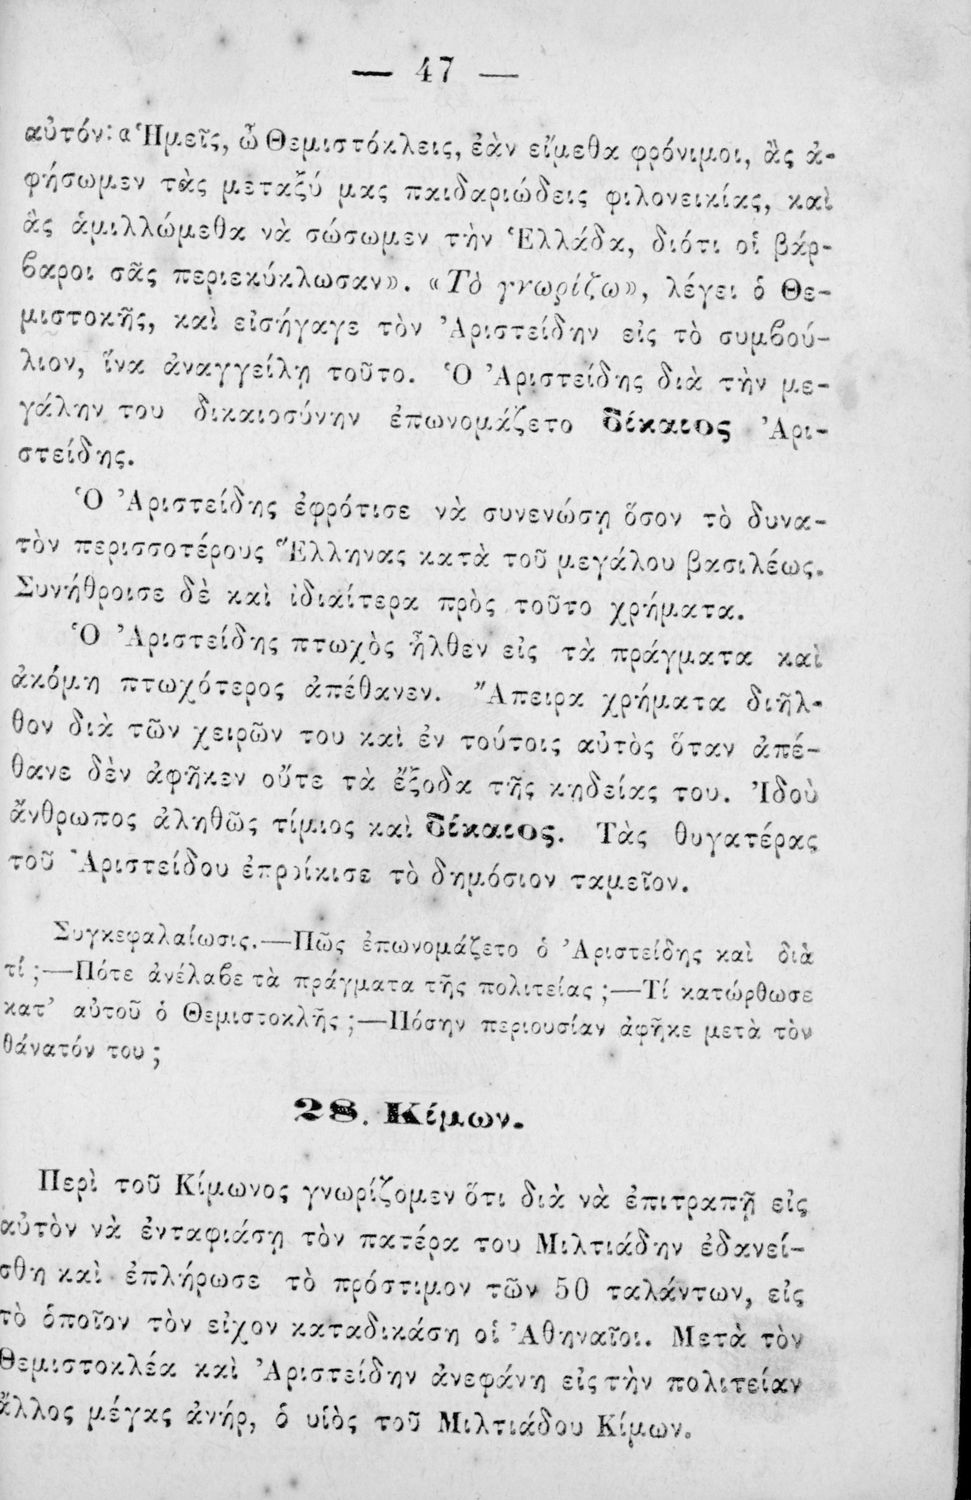 — 47 —
αὐτόν: «Ἡμεῖς, ὦ Θεμιστόκλεις, ἐὰν εἴμεθα φρόνιμοι, ἂς ἀ-
φήσωμεν τὰς μεταξύ μας παιδαριώδεις φιλονεικίας, καὶ
ἂς ἁμιλλώμεθα νὰ σώσωμεν τὴν Ἑλλάδα, διότι οἱ βάρ-
βαροι σᾶς περιεκύκλωσαν». «Τὸ γνωρίζω», λέγει ὁ Θε-
μιστοκῆς, καὶ εἰσήγαγε τὸν Ἀριστείδην εἰς τὸ συμβού-
λιον, ἵνα ἀναγγείλῃ τοῦτο. Ὁ Ἀριστείδης διὰ τὴν με-
γάλην του δικαιοσύνην ἐπωνομάζετο δίκαιος Ἀρι-
στείδης.
Ὁ Ἀριστείδης ἐφρότισε νὰ συνενώσῃ ὅσον τὸ δυνα-
τὸν περισσοτέρους Ἕλληνας κατὰ τοῦ μεγάλου βασιλέως.
Συνήθροισε δὲ καὶ ἰδιαίτερα πρὸς τοῦτο χρήματα.
Ὁ Ἀριστείδης πτωχὸς ἦλθεν εἰς τὰ πράγματα καὶ
ἀκόμη πτωχότερος ἀπέθανεν. Ἄπειρα χρήματα διῆλ-
θον διὰ τῶν χειρῶν του καὶ ἐν τούτοις αὐτὸς ὅταν ἀπέ-
θανε δὲν ἀφῆκεν οὔτε τὰ ἔξοδα τῆς κηδείας του. Ἰδοὺ
ἄνθρωπος ἀληθῶς τίμιος καὶ δίκαιος. Τὰς θυγατέρας
τοῦ Ἀριστείδου ἐπροίκισε τὸ δημόσιον ταμεῖον.
Συγκεφαλαίωσις.—Πῶς ἐπωνομάζετο ὁ Ἀριστείδης καὶ διὰ
τί ;—Πότε ἀνέλαβε τὰ πράγματα τῆς πολιτείας ;—Τί κατώρθωσε
κατ' αὐτοῦ ὁ Θεμιστοκλῆς ;—Πόσην περιουσίαν ἀφῆκε μετὰ τὸν
θάνατόν του ;
28. Κίμων.
Περὶ τοῦ Κίμωνος γνωρίζομεν ὅτι διὰ νὰ ἐπιτραπῇ εἰς
αὐτὸν νὰ ἐνταφιάσῃ τὸν πατέρα του Μιλτιάδην ἐδανεί-
σθη καὶ ἐπλήρωσε τὸ πρόστιμον τῶν 50 ταλάντων, εἰς
τὸ ὁποῖον τὸν εἶχον καταδικάσῃ οἱ Ἀθηναῖοι. Μετὰ τὸν
Θεμιστοκλέα καὶ Ἀριστείδην ἀνεφάνη εἰς τὴν πολιτείαν
ἄλλος μέγας ἀνήρ, ὁ υἱὸς τοῦ Μιλτιάδου Κίμων.